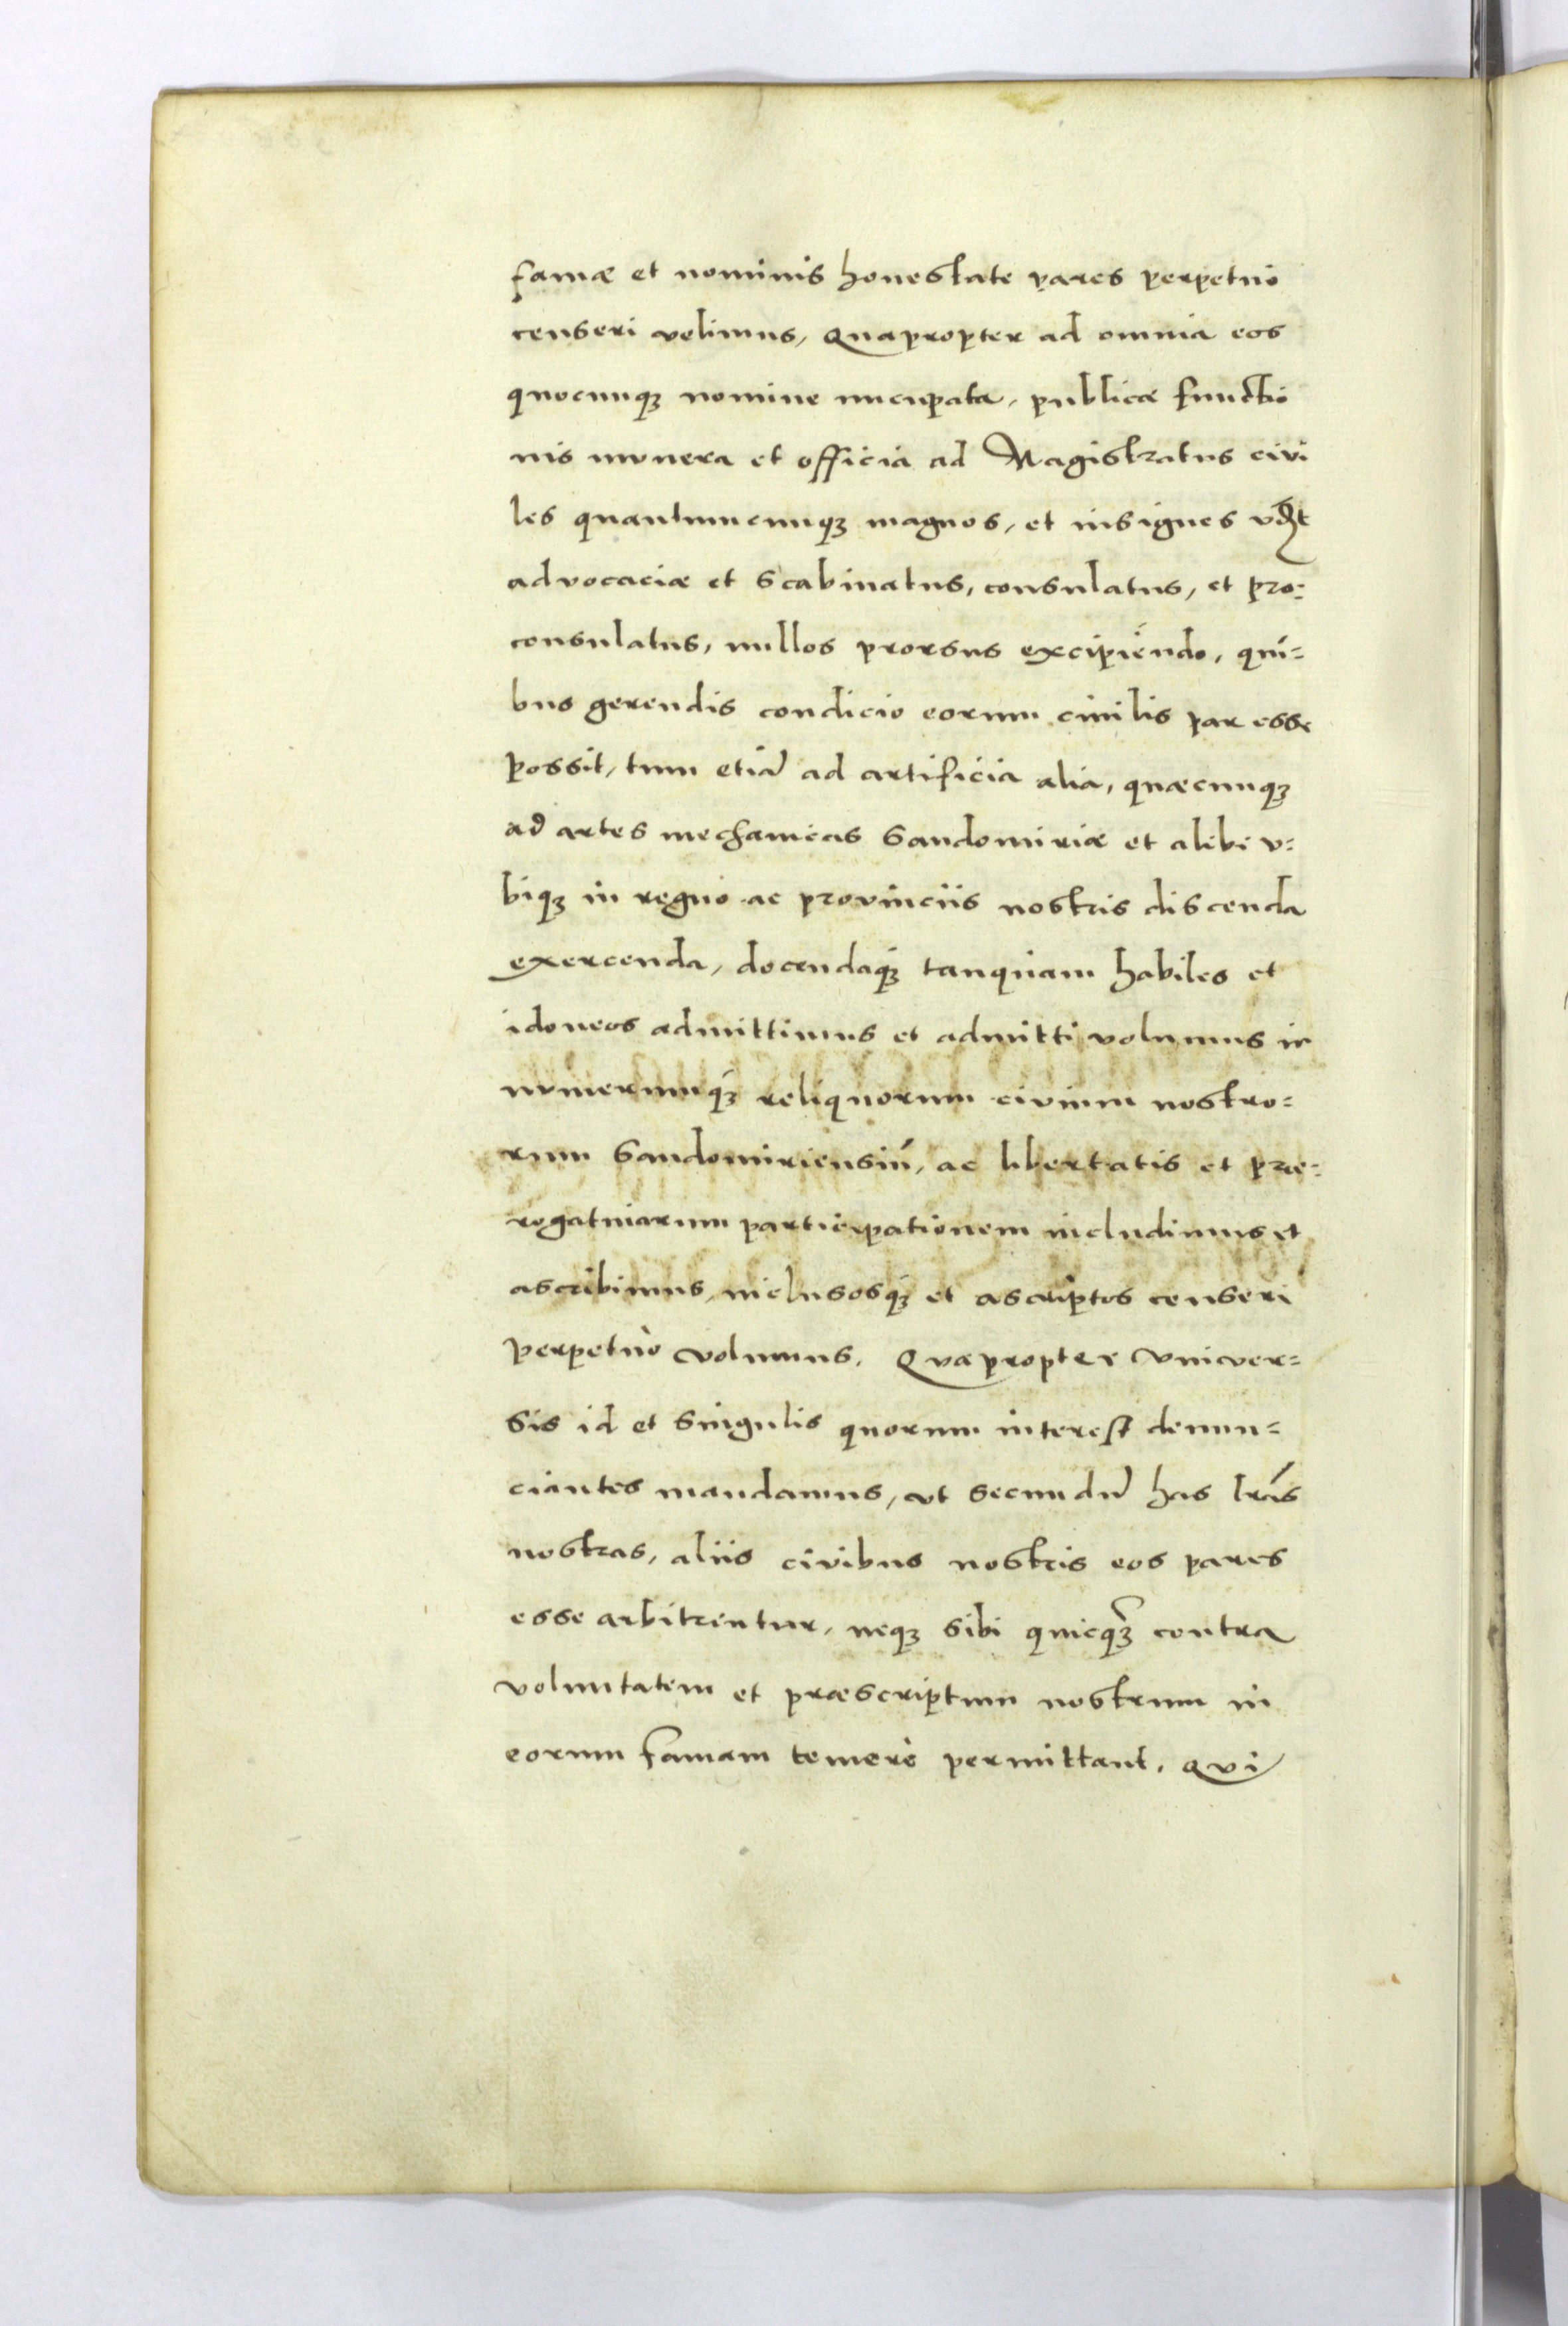 famæ et nominis honestate pares perpetuo
censeri velimus, Quapropter ad omnia eos
quocunqꝫ nomine nucupata, publicæ functio
nis mvnera et officia ad Magistratus civi
les quantumcunqꝫ magnos, et insignes
advocaciæ et Scabinatus, consulatus, et pro:
consulatus, nullos prorsus excipiendo, qui=
bus gerendis condicio eorum ciuilis par esse
possit, tum etiā ad artificia alia, quæcunqꝫ
ad artes mechanicas Sandomiriæ et alibi v=
biqꝫ in regno ac provinciis nostris discenda
exercenda, docendaqꝫ tanquam habiles et
idoneos admittimus et admitti volumus in
nvmerumqꝫ reliquorum civium nostro=
rum Sandomiriensiū, ac libertatis et præ=
rogatiuarum participationem includimus et
ascribimus, inclusosqꝫ et ascriptos censeri
perpetuò volumus. Qvapropter vniver=
sis id et singulis quorum interest denun=
ciantes mandamus, vt secundū has lrãs
nostras, aliis civibus nostris eos pares
esse arbitrentur, neqꝫ sibi quicqꝫ contra
voluntatem et præscriptum nostrum in
eorum famam temerè permittant. Qvi